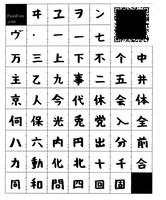 PuzzFun .com ヰ ヱ ヲ ン
ヴ ・ ー 一 七
万 三 上 下 不 个 中
主 乙 九 事 二 五 井
京 人 今 代 休 会 体
何 保 光 兎 党 入 全
八 六 内 円 出 分 前
力 動 化 北 十 千 合
同 和 問 四 回 固